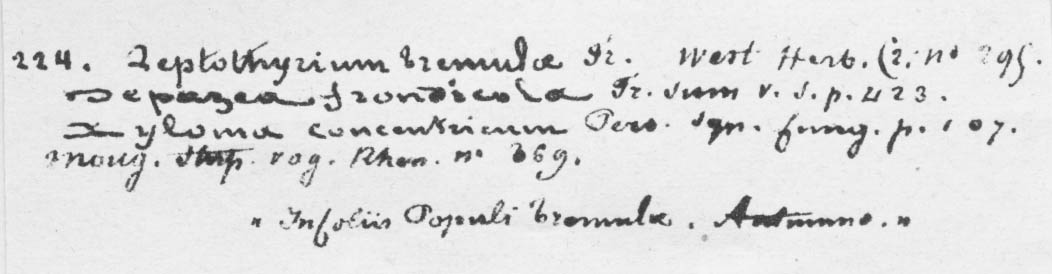 224. Leptothyrium tremulæ Fr. West Herb. Cr. no 295.
Depazea frondicola Fr. Sum v. S. p. 423.
Xyloma concentricum Pers. Syn. fung. p. 107.
Moug. Stirp. vog. Rhen. no 369.
" In foliis Populi tremulæ. Autumno. "